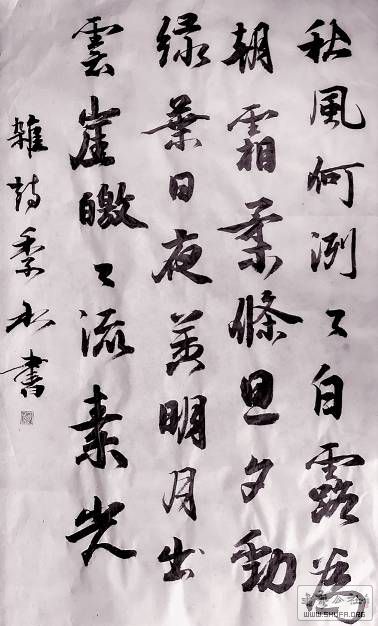 秋風何洌〻白露為
朝霜柔條旦夕勁
綠葉日夜黃明月出
雲崖皦〻流素光
雜詩 書
WWW.SHUFA.ORG